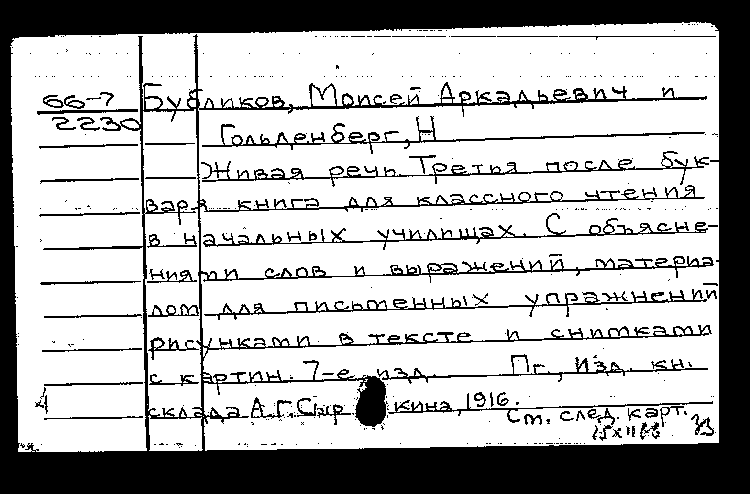 66-7 Бубликов, Моисей Аркадьевич и
2230 Гольденберг, Н
Живая речь. Третья после бук-
варя книга для классного чтения
в начальных училищах. С объясне-
ниями слов и выражений, материа-
лом для письменных упражнений
рисунками в тексте и снимками
с картин. 7-е изд. Пг., Изд. кн.
склада А.Г. Сыр кина, 1916.
См. след. карт.